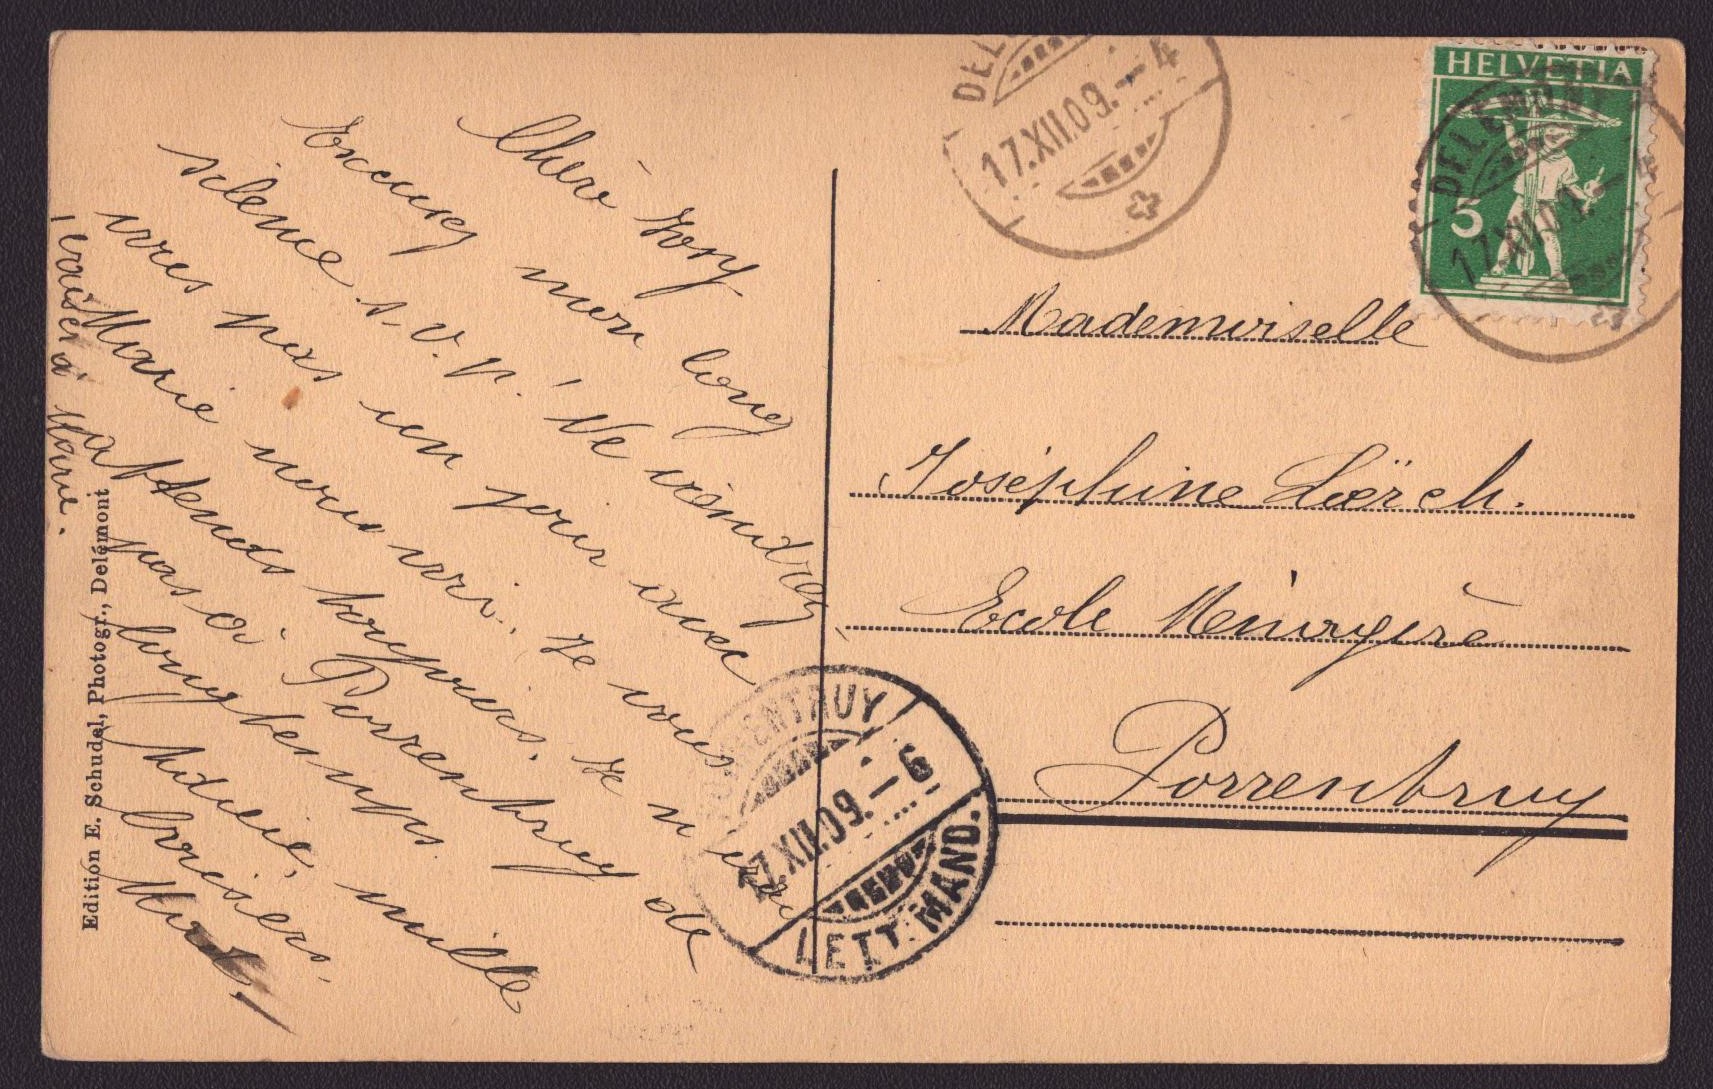 Chère Josy
Excusez mon long
silence s.v.p.! Ne viendrez
vous pas un jour avec
Marie nous voir. Je vous
attends toujours. Je n'irai
pas à Porrentruy de
longtemps. Adieu, mille
baisers.
baiser à Marie.
Edition E. Schudel, Photogr., Delémont
DELÉ
17.XII.09.-4
HELVETIA
5
DELEMONT
17.XII.09.-
Mademoiselle
Joséphine Lœrch.
Ecole Ménagère
Porrentruy
PORRENTRUY
17.XII.09.-6
LETT. MAND.